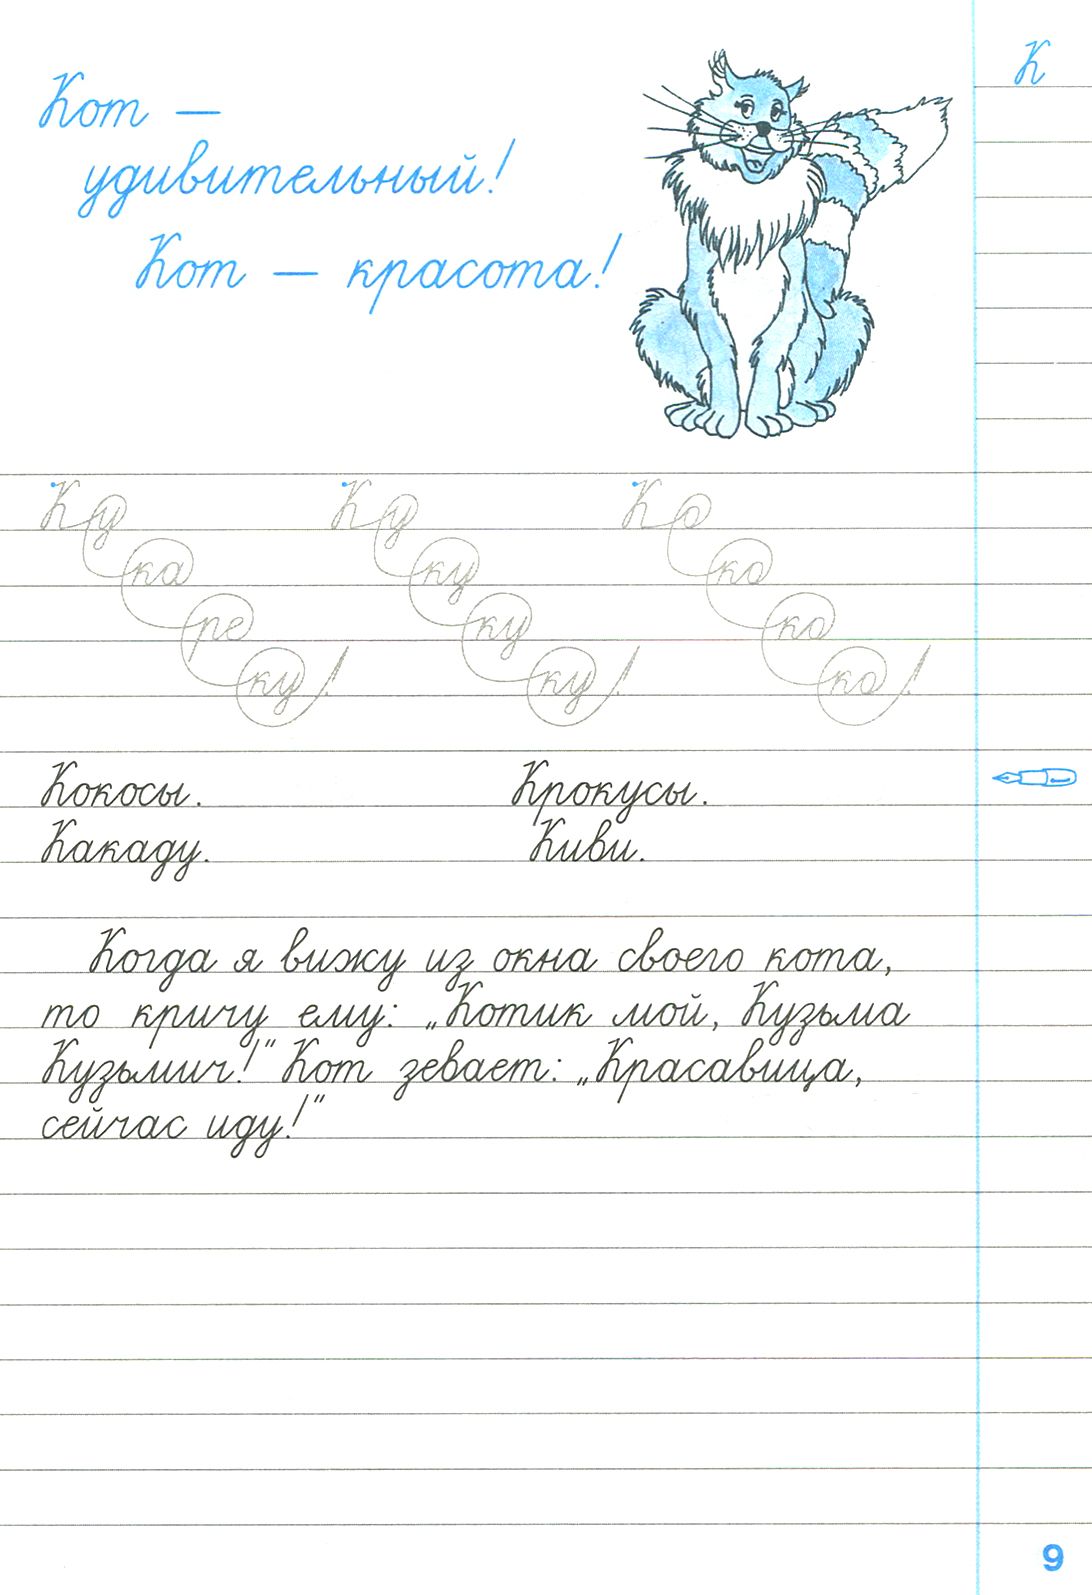 К
Кот —
удивительный!
Кот — красота!
Ку Ку Ко
ка ку ко
ре ку ко
ку! ку! ко!
Кокосы. Крокусы.
Какаду. Киви.
Когда я вижу из окна своего кота,
то кричу ему: „Котик мой, Кузьма
Кузьмич!” Кот зевает: „Красавица,
сейчас иду!”
9